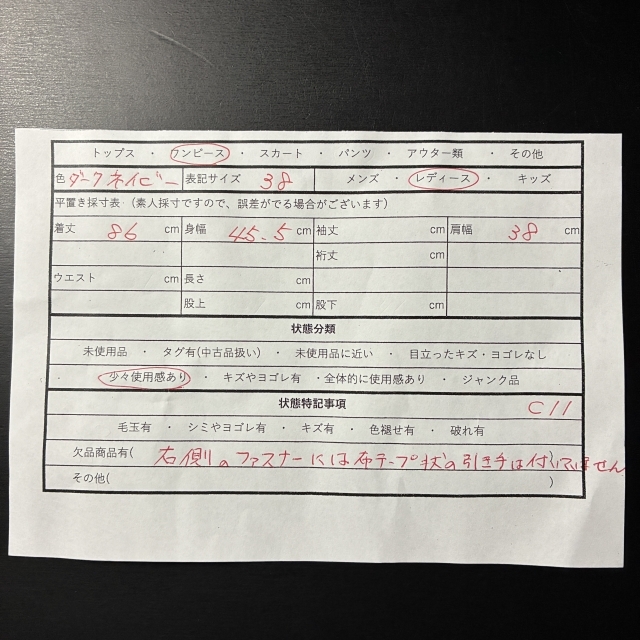 トップス ・ ワンピース ・ スカート ・ パンツ ・ アウター類 ・ その他
色 ダークネイビー 表記サイズ 38 メンズ ・ レディース ・ キッズ
平置き採寸表 (素人採寸ですので、誤差がでる場合がございます)
着丈 86 cm 身幅 45.5 cm 袖丈 cm 肩幅 38 cm
裄丈 cm
ウエスト cm 長さ cm
股上 cm 股下 cm
状態分類
未使用品 ・ タグ有(中古品扱い) ・ 未使用品に近い ・ 目立ったキズ・ヨゴレなし
・ 少々使用感あり ・ キズやヨゴレ有 ・全体的に使用感あり ・ ジャンク品
状態特記事項 C11
毛玉有 ・ シミやヨゴレ有 ・ キズ有 ・ 色褪せ有 ・ 破れ有
欠品商品有( 右側のファスナーには布テープ状の引き手は付いてません )
その他( )